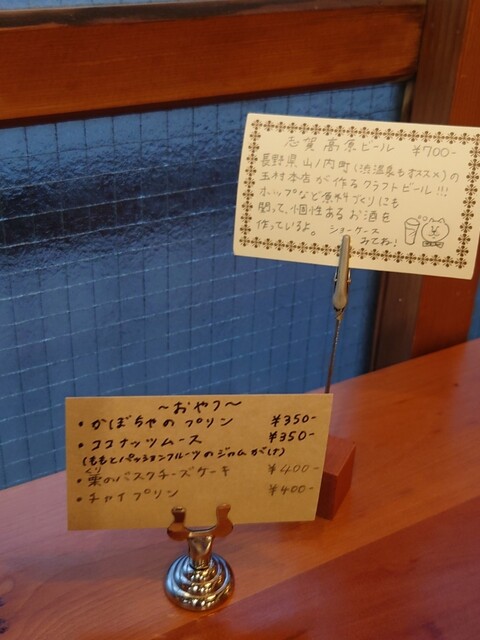 志賀高原ビール ¥700-
長野県山ノ内町(渋温泉もオススメ)の
玉村本店が作るクラフトビール!!!
ホップなど原料づくりにも
関って、個性あるお酒を
作っているよ。 ショーケース
みてね!
〜おやつ〜
・かぼちゃのプリン ¥350-
・ココナッツムース ¥350-
(ももとパッションフルーツのジャムがけ)
くり
・栗のバスクチーズケーキ ¥400-
・チャイプリン ¥400-